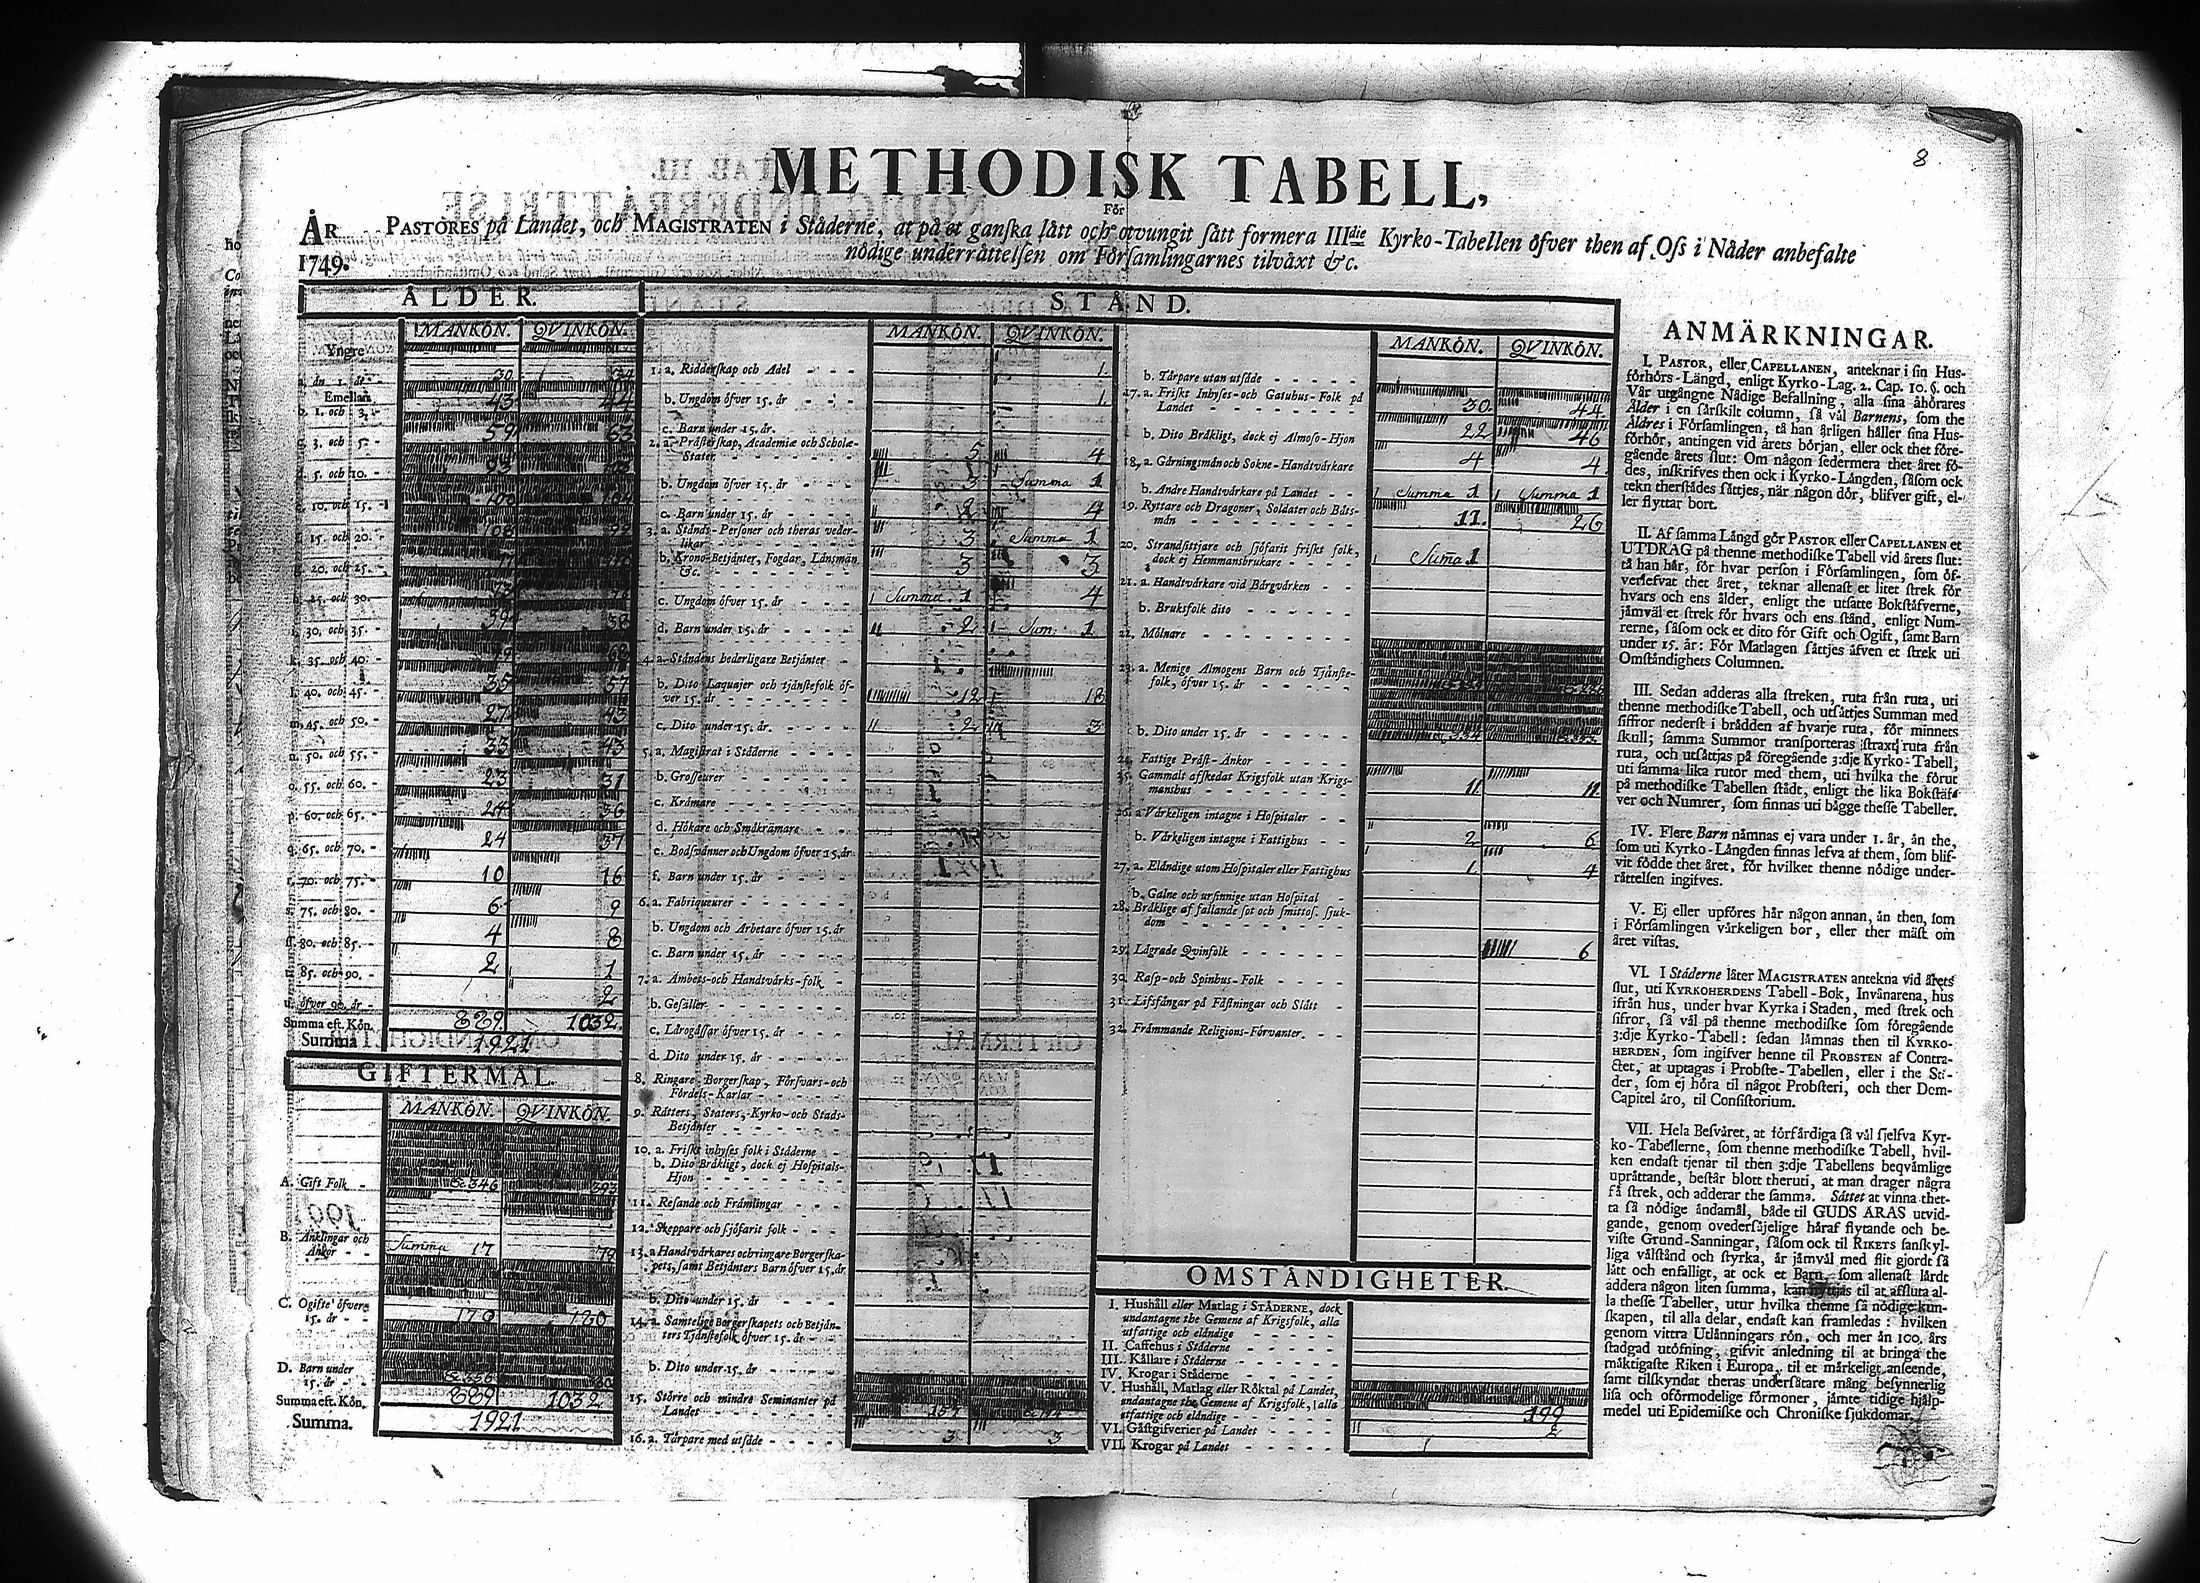 8
METHODISK TABELL,
För
ÅR PASTORES på Landet, och MAGISTRATEN i Städerne, at på et ganska lätt och otvungit sätt formera IIIdie Kyrko-Tabellen öfver then af Oss i Nåder anbefalte
1749. nödige underrättelsen om Församlingarnes tilväxt &c.
ÅLDER.
MANKÖN. QVINKÖN.
Yngre
a. än 1. år 30 34
Emellan
b. 1. och 3. 43 44
c. 3. och 5. 59 63
d. 5. och 10.
e. 10. och 15. 100
f. 15. och 20. 108 99
g. 20. och 25.
h. 25. och 30. 73
i. 30. och 35. 39 58
k. 35. och 40. 68
l. 40. och 45. 35 57
m. 45. och 50. 27 43
n. 50. och 55. 33 43
o. 55. och 60. 23 31
p. 60. och 65. 24 36
q. 65. och 70. 24 37
r. 70. och 75. 10 16
s. 75. och 80. 6 9
ſſ. 80. och 85. 4 8
t. 85. och 90. 2 1
u. öfver 90. år 2
Summa eft. Kön. 889 1032.
Summa 1921
GIFTERMÅL.
MANKÖN. QVINKÖN.
A. Gift Folk 346 393
B. Änklingar och
Änkor Summa 17 79
C. Ogifte öfver
15. år 170 180
D. Barn under
15. år
Summa eft. Kön. 889 1032
Summa. 1921
STÅND.
MANKÖN. QVINKÖN.
1. a. Ridderskap och Adel 1
b. Ungdom öfver 15. år 1
c. Barn under 15. år.
2. a. Prästerskap, Academiæ och Scholæ-
Stater 5 4
b. Ungdom öfver 15. år 3 Summa 1
c. Barn under 15. år 2 4
3. a. Stånds-Personer och theras veder-
likar 3 Summa 1
b. Krono-Betjänter, Fogdar, Länsmän
&c. 3 3
c. Ungdom öfver 15. år Summa 1 4
d. Barn under 15. år 2 Sum: 1
4. a. Ståndens hederligare Betjänter
b. Dito Laquajer och tjänstefolk öf-
ver 15. år 12 18
c. Dito under 15. år 2 3
5. a. Magistrat i Städerne
b. Grosseurer
c. Krämare
d. Hökare och Småkrämare
e. Bodsvänner och Ungdom öfver 15. år
f. Barn under 15. år
6. a. Fabriqueurer
b. Ungdom och Arbetare öfver 15. år
c. Barn under 15. år
7. a. Ambets-och Handtvärks-folk
b. Gesäller
c. Lärogåssar öfver 15. år
d. Dito under 15. år
8. Ringare Borgerskap, Försvars-och
Fördels-Karlar
9. Rätters, Staters, Kyrko-och Stads-
Betjänter
10. a. Friskt inhyses folk i Städerne
b. Dito Bräkligt, dock ej Hospitals-
Hjon
11. Resande och Främlingar
12. Skeppare och sjöfarit folk
13. a Handtvärkares och ringare Borgerska-
pets, samt Betjänters Barn öfver 15. år
b. Dito under 15. år
14. a. Samtelige Borgerskapets och Betjän-
ters Tjänstefolk öfver 15. år
b. Dito under 15. år
15. Större och mindre Seminanter på
Landet
16. a. Tårpare med utsäde 3 3
MANKÖN. QVINKÖN.
b. Tårpare utan utsäde
17. a. Friskt Inhyses-och Gatuhus-Folk på
Landet 30. 44.
b. Dito Bräkligt, dock ej Almoso-Hjon 22 46
18. a. Gärningsmän och Sokne-Handtvärkare 4 4
b. Andre Handtvärkare på Landet Summa 1 Summa 1
19. Ryttare och Dragoner, Soldater och Båts-
män 11. 26
20. Strandsittjare och sjöfarit friskt folk,
dock ej Hemmansbrukare Suma 1
21. a. Handtvärkare vid Bärgvärken
b. Bruksfolk dito
22. Mölnare
23. a. Menige Almogens Barn och Tjänste-
folk, öfver 15. år
b. Dito under 15. år 334
24. Fattige Präst-Änkor
25. Gammalt afskedat Krigsfolk utan Krigs-
manshus 11. 11.
26. a Värkeligen intagne i Hospitaler
b. Värkeligen intagne i Fattighus 2 6
27. a. Eländige utom Hospitaler eller Fattighus 1 4
b. Galne och ursinnige utan Hospital
28. Bräklige af fallande sot och smittos. sjuk-
dom
29. Lägrade Qvinfolk 6
30. Rasp-och Spinhus-Folk
31. Lifsfångar på Fästningar och Slått
32. Främmande Religions-Förvanter.
OMSTÄNDIGHETER.
I. Hushåll eller Matlag i STÄDERNE, dock
undantagne the Gemene af Krigsfolk, alla
utfattige och eländige
II. Caffehus i Städerne
III. Källare i Städerne
IV. Krogar i Städerne
V. Hushåll, Matlag eller Röktal på Landet,
undantagne the Gemene af Krigsfolk, alla
utfattige och eländige 199
VI. Gästgifverier på Landet 2
VII. Krogar på Landet
ANMÄRKNINGAR.
I. PASTOR, eller CAPELLANEN, anteknar i sin Hus-
förhörs-Längd, enligt Kyrko-Lag. 2. Cap. 10. §. och
Vår utgångne Nådige Befallning, alla sina åhörares
Ålder i en särskilt column, så väl Barnens, som the
Äldres i Församlingen, tå han årligen håller sina Hus-
förhör, antingen vid årets början, eller ock thet före-
gående årets slut: Om någon sedermera thet året fö-
des, inskrifves then ock i Kyrko-Längden, såsom ock
tekn therstädes sättjes, när någon dör, blifver gift, el-
ler flyttar bort.
II. Af samma Längd gör PASTOR eller CAPELLANEN et
UTDRAG på thenne methodiske Tabell vid årets slut:
tå han här, för hvar person i Församlingen, som öf-
verlefvat thet året, teknar allenast et litet strek för
hvars och ens ålder, enligt the utsatte Bokstäfverne,
jämväl et strek för hvars och ens stånd, enligt Num-
rerne, såsom ock et dito för Gift och Ogift, samt Barn
under 15. år: För Matlagen sättjes äfven et strek uti
Omständighets Columnen.
III. Sedan adderas alla streken, ruta från ruta, uti
thenne methodiske Tabell, och utsättjes Summan med
siffror nederst i brädden af hvarje ruta, för minnets
skull; samma Summor transporteras straxt ruta från
ruta, och utsättjas på föregående 3:dje Kyrko-Tabell,
uti samma lika rutor med them, uti hvilka the förut
på methodiske Tabellen stådt, enligt the lika Bokstäf-
ver och Numrer, som finnas uti bägge thesse Tabeller.
IV. Flere Barn nämnas ej vara under 1. år, än the,
som uti Kyrko-Längden finnas lefva af them, som blif-
vit födde thet året, för hvilket thenne nödige under-
rättelsen ingifves.
V. Ej eller upföres här någon annan, än then, som
i Församlingen värkeligen bor, eller ther mäst om
året vistas.
VI. I Städerne låter MAGISTRATEN antekna vid årets
slut, uti KYRKOHERDENS Tabell-Bok, Invånarena, hus
ifrån hus, under hvar Kyrka i Staden, med strek och
sifror, så väl på thenne methodiske som föregående
3:dje Kyrko-Tabell: sedan lämnas then til KYRKO-
HERDEN, som ingifver henne til PROBSTEN af Contra-
ctet, at uptagas i Probste-Tabellen, eller i the Stä-
der, som ej höra til något Probsteri, och ther Dom-
Capitel äro, til Consistorium.
VII. Hela Besväret, at förfärdiga så väl sjelfva Kyr-
ko-Tabellerne, som thenne methodiske Tabell, hvil-
ken endast tjenar til then 3:dje Tabellens beqvämlige
uprättande, består blott theruti, at man drager några
få strek, och adderar the samma. Sättet at vinna thet-
ta så nödige ändamål, både til GUDS ÄRAS utvid-
gande, genom ovedersäjelige häraf flytande och be-
viste Grund-Sanningar, såsom ock til RIKETS sanskyl-
liga välstånd och styrka, är jämväl med flit gjordt så
lätt och enfalligt, at ock et Barn, som allenast lärdt
addera någon liten summa, kan nyttjas til at affluta al-
la thesse Tabeller, utur hvilka thenne så nödige kun-
skapen, til alla delar, endast kan framledas: hvilken
genom vittra Utlänningars rön, och mer än 100. års
stadgad utöfning, gifvit anledning til at bringa the
mäktigaste Riken i Europa, til et märkeligt anseende,
samt tilskyndat theras undersåtare mång besynnerlig
lisa och oförmodelige förmoner, jämte tidige hjälp-
medel uti Epidemiske och Chroniske sjukdomar.